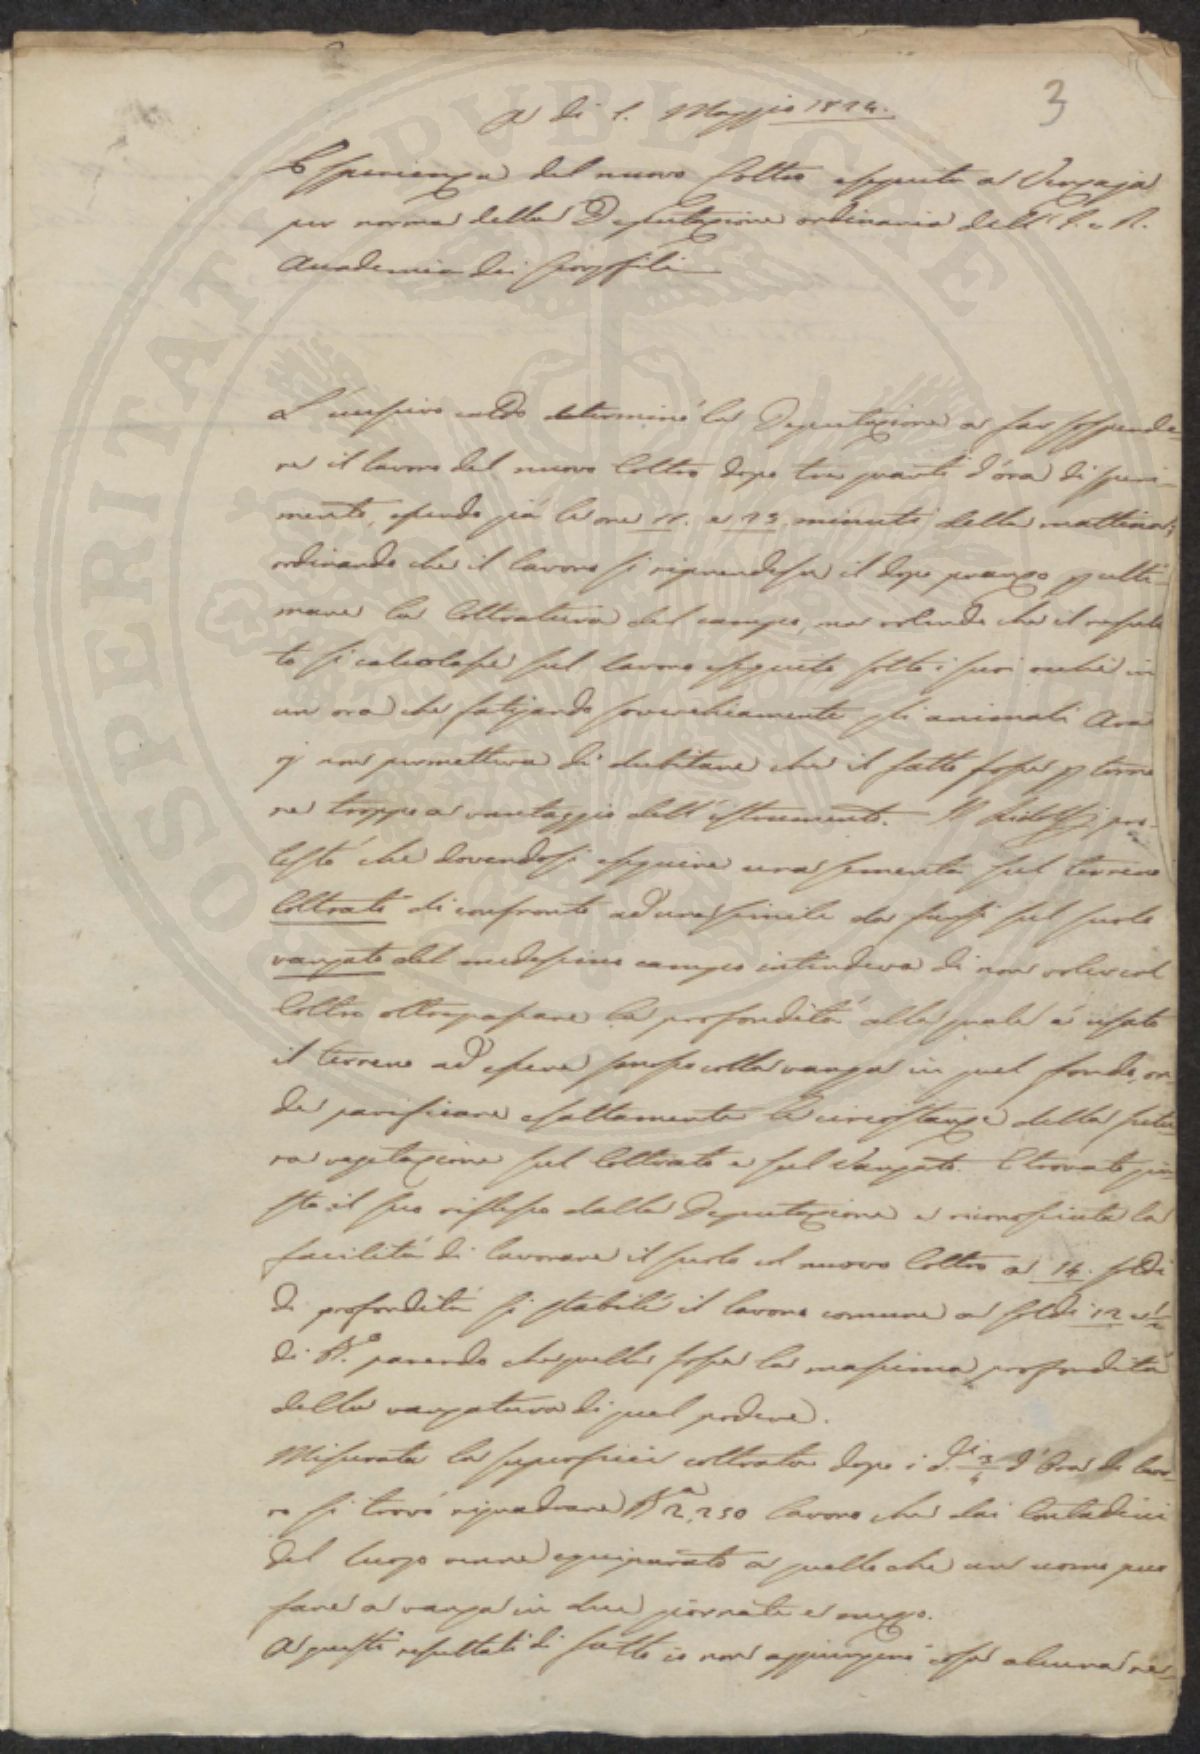 3
A di 1. Maggio 1824.
Esperienza del nuovo Coltro eseguita a Vergaja
per norma della Deputazione ordinaria dell' I. e R.
Accademia dei Georgofili
L'eccessivo caldo determinò la Deputazione a far sospende-
re il lavoro del nuovo Coltro dopo tre quarti d'ora di speri-
mento, essendo già le ore 11. e 25 minuti della mattina;
ordinando che il lavoro si riprendesse il dopo pranzo p ulti-
mare la Coltratura del campo, non volendo che il resulta
to si calcolasse sul lavoro eseguito sotto i suoi occhi in
un ora che fatigando soverchiamente gli animali
non permetteva di dubitare che il fatto fosse p torna
re troppo a vantaggio dell'istrumento. Il Ridolfi pro-
testò che dovendosi eseguire una sementa sul terreno
Coltrato di confronto ad una simile da farsi sul suolo
vangato del medesimo campo intendeva di non voler col
Coltro oltrepassare la profondità alla quale è usato
il terreno ad essere smosso colla vanga in quel fondo, on-
de parificare esattamente le circostanze della futu-
ra vegetazione sul Coltrato e sul Vangato. E trovato giu-
sto il suo riflesso dalla Deputazione e riconosciuta la
facilità di lavorare il suolo col nuovo Coltro a 14. soldi
di profondità si stabilì il lavoro comune a soldi 12 e ½
di B.º parendo che quella fosse la massima profondità
della vangatura di quel podere.
Misurata la superficie coltrata dopo i d.i 3/4 d'Ora di lavo-
ro si trovò riquadrare B.a 2,250 lavoro che dai Contadini
del luogo venne equiparato a quello che un uomo puo
fare a vanga in due giornate e mezzo.
A questi resultati di fatto io non aggiungerò cosa alcuna re-
PROSPERITATI PUBLICAE